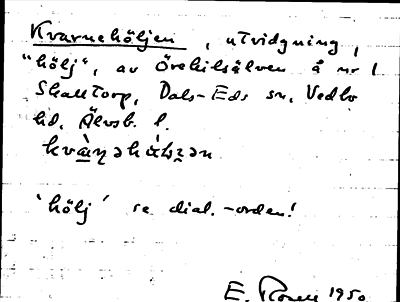 Kvarnehöljen, utvidgning,
"hölj", av Örekilsälven å nr 1
Skalltorp, Dals-Eds sn, Vedbo
hd, Älvsb. l.
'hölj' se dial.-orden!
E. Rosell 1950